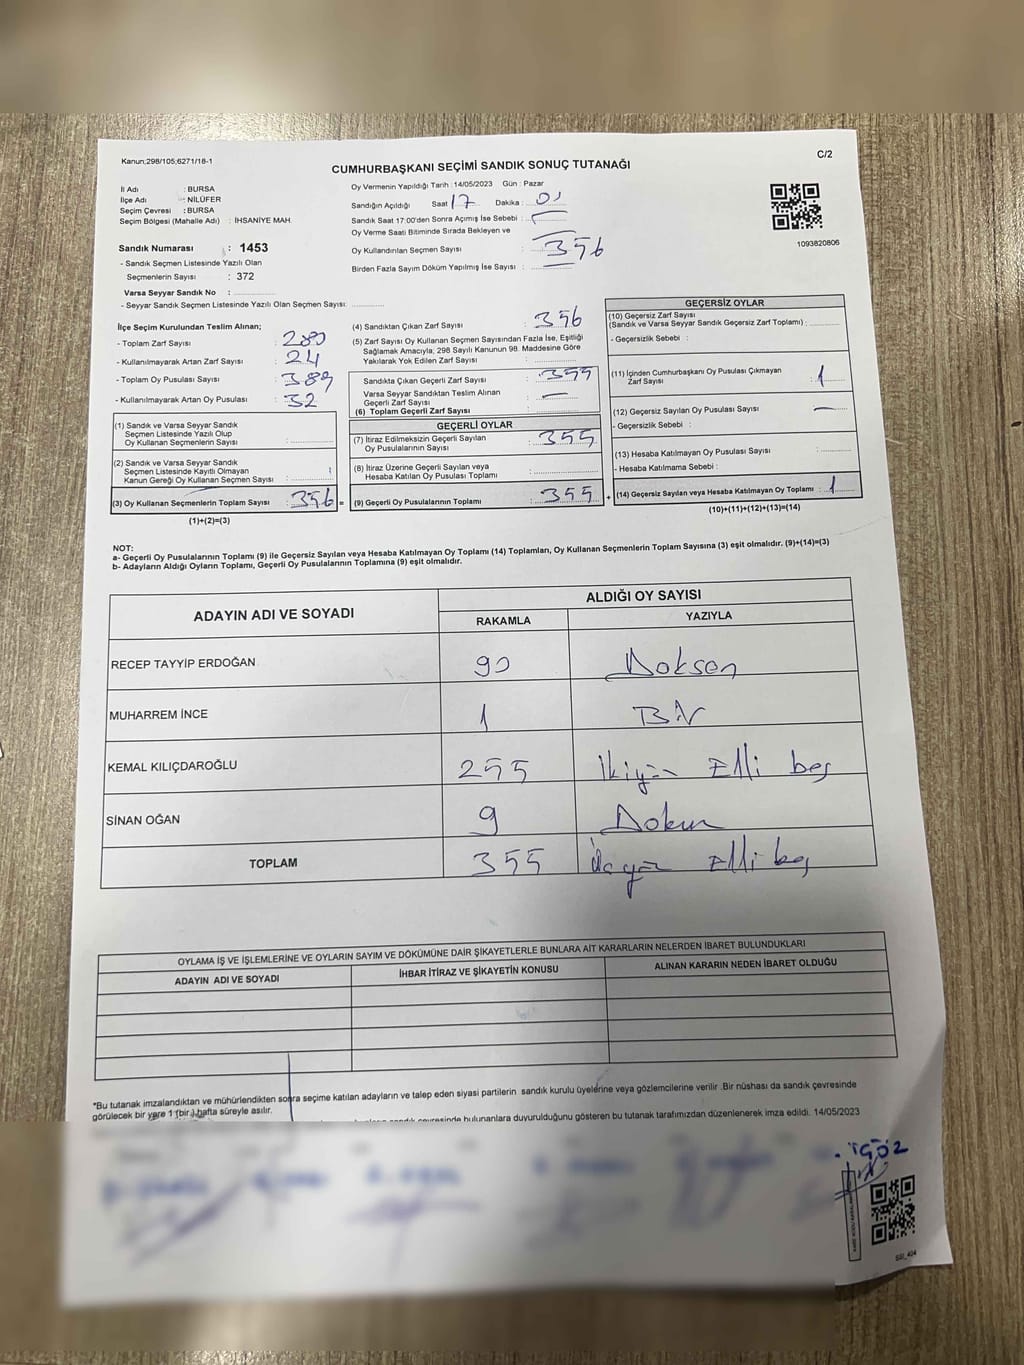 Kanun;298/105;6271/18-1
C/2
CUMHURBAŞKANI SEÇİMİ SANDIK SONUÇ TUTANAĞI
İl Adı : BURSA
İlçe Adı : NİLÜFER
Seçim Çevresi : BURSA
Seçim Bölgesi (Mahalle Adı) : İHSANİYE MAH.
Oy Vermenin Yapıldığı Tarih :14/05/2023 Gün : Pazar
Sandığın Açıldığı Saat 17 Dakika : 01
Sandık Saat 17:00'den Sonra Açımış İse Sebebi :
Oy Verme Saati Bitiminde Sırada Bekleyen ve
Oy Kullandırılan Seçmen Sayısı : 356
Birden Fazla Sayım Döküm Yapılmış İse Sayısı :
1093820806
Sandık Numarası : 1453
- Sandık Seçmen Listesinde Yazılı Olan
Seçmenlerin Sayısı : 372
Varsa Seyyar Sandık No :
- Seyyar Sandık Seçmen Listesinde Yazılı Olan Seçmen Sayısı:
İlçe Seçim Kurulundan Teslim Alınan;
- Toplam Zarf Sayısı :
- Kullanılmayarak Artan Zarf Sayısı : 24
- Toplam Oy Pusulası Sayısı : 389
- Kullanılmayarak Artan Oy Pusulası : 32
(1) Sandık ve Varsa Seyyar Sandık
Seçmen Listesinde Yazılı Olup
Oy Kullanan Seçmenlerin Sayısı :
(2) Sandık ve Varsa Seyyar Sandık
Seçmen Listesinde Kayıtlı Olmayan
Kanun Gereği Oy Kullanan Seçmen Sayısı :
(3) Oy Kullanan Seçmenlerin Toplam Sayısı : 356 =
(1)+(2)=(3)
(4) Sandıktan Çıkan Zarf Sayısı : 356
(5) Zarf Sayısı Oy Kullanan Seçmen Sayısından Fazla İse, Eşitliği
Sağlamak Amacıyla; 298 Sayılı Kanunun 98. Maddesine Göre
Yakılarak Yok Edilen Zarf Sayısı :
Sandıkta Çıkan Geçerli Zarf Sayısı : 355
Varsa Seyyar Sandıktan Teslim Alınan
Geçerli Zarf Sayısı : —
(6) Toplam Geçerli Zarf Sayısı :
GEÇERLİ OYLAR
(7) İtiraz Edilmeksizin Geçerli Sayılan
Oy Pusulalarının Sayısı : 355
(8) İtiraz Üzerine Geçerli Sayılan veya
Hesaba Katılan Oy Pusulaları Toplamı :
(9) Geçerli Oy Pusulalarının Toplamı : 355 +
GEÇERSİZ OYLAR
(10) Geçersiz Zarf Sayısı
(Sandık ve Varsa Seyyar Sandık Geçersiz Zarf Toplamı) :
- Geçersizlik Sebebi :
(11) İçinden Cumhurbaşkanı Oy Pusulası Çıkmayan
Zarf Sayısı : 1
(12) Geçersiz Sayılan Oy Pusulası Sayısı : —
- Geçersizlik Sebebi :
(13) Hesaba Katılmayan Oy Pusulası Sayısı :
- Hesaba Katılmama Sebebi :
(14) Geçersiz Sayılan veya Hesaba Katılmayan Oy Toplamı : 1
(10)+(11)+(12)+(13)=(14)
NOT:
a- Geçerli Oy Pusulalarının Toplamı (9) ile Geçersiz Sayılan veya Hesaba Katılmayan Oy Toplamı (14) Toplamları, Oy Kullanan Seçmenlerin Toplam Sayısına (3) eşit olmalıdır. (9)+(14)=(3)
b- Adayların Aldığı Oyların Toplamı, Geçerli Oy Pusulalarının Toplamına (9) eşit olmalıdır.
ADAYIN ADI VE SOYADI
ALDIĞI OY SAYISI
RAKAMLA YAZIYLA
RECEP TAYYİP ERDOĞAN 90 Doksan
MUHARREM İNCE 1 Bir
KEMAL KILIÇDAROĞLU 255 İkiyüz Elli beş
SİNAN OĞAN 9 Dokuz
TOPLAM 355 üçyüz Elli beş
OYLAMA İŞ VE İŞLEMLERİNE VE OYLARIN SAYIM VE DÖKÜMÜNE DAİR ŞİKAYETLERLE BUNLARA AİT KARARLARIN NELERDEN İBARET BULUNDUKLARI
ADAYIN ADI VE SOYADI İHBAR İTİRAZ VE ŞİKAYETİN KONUSU ALINAN KARARIN NEDEN İBARET OLDUĞU
*Bu tutanak imzalandıktan ve mühürlendikten sonra seçime katılan adayların ve talep eden siyasi partilerin sandık kurulu üyelerine veya gözlemcilerine verilir .Bir nüshası da sandık çevresinde
görülecek bir yere 1 (bir ) hafta süreyle asılır.
bulunanlara duyurulduğunu gösteren bu tutanak tarafımızdan düzenlenerek imza edildi. 14/05/2023